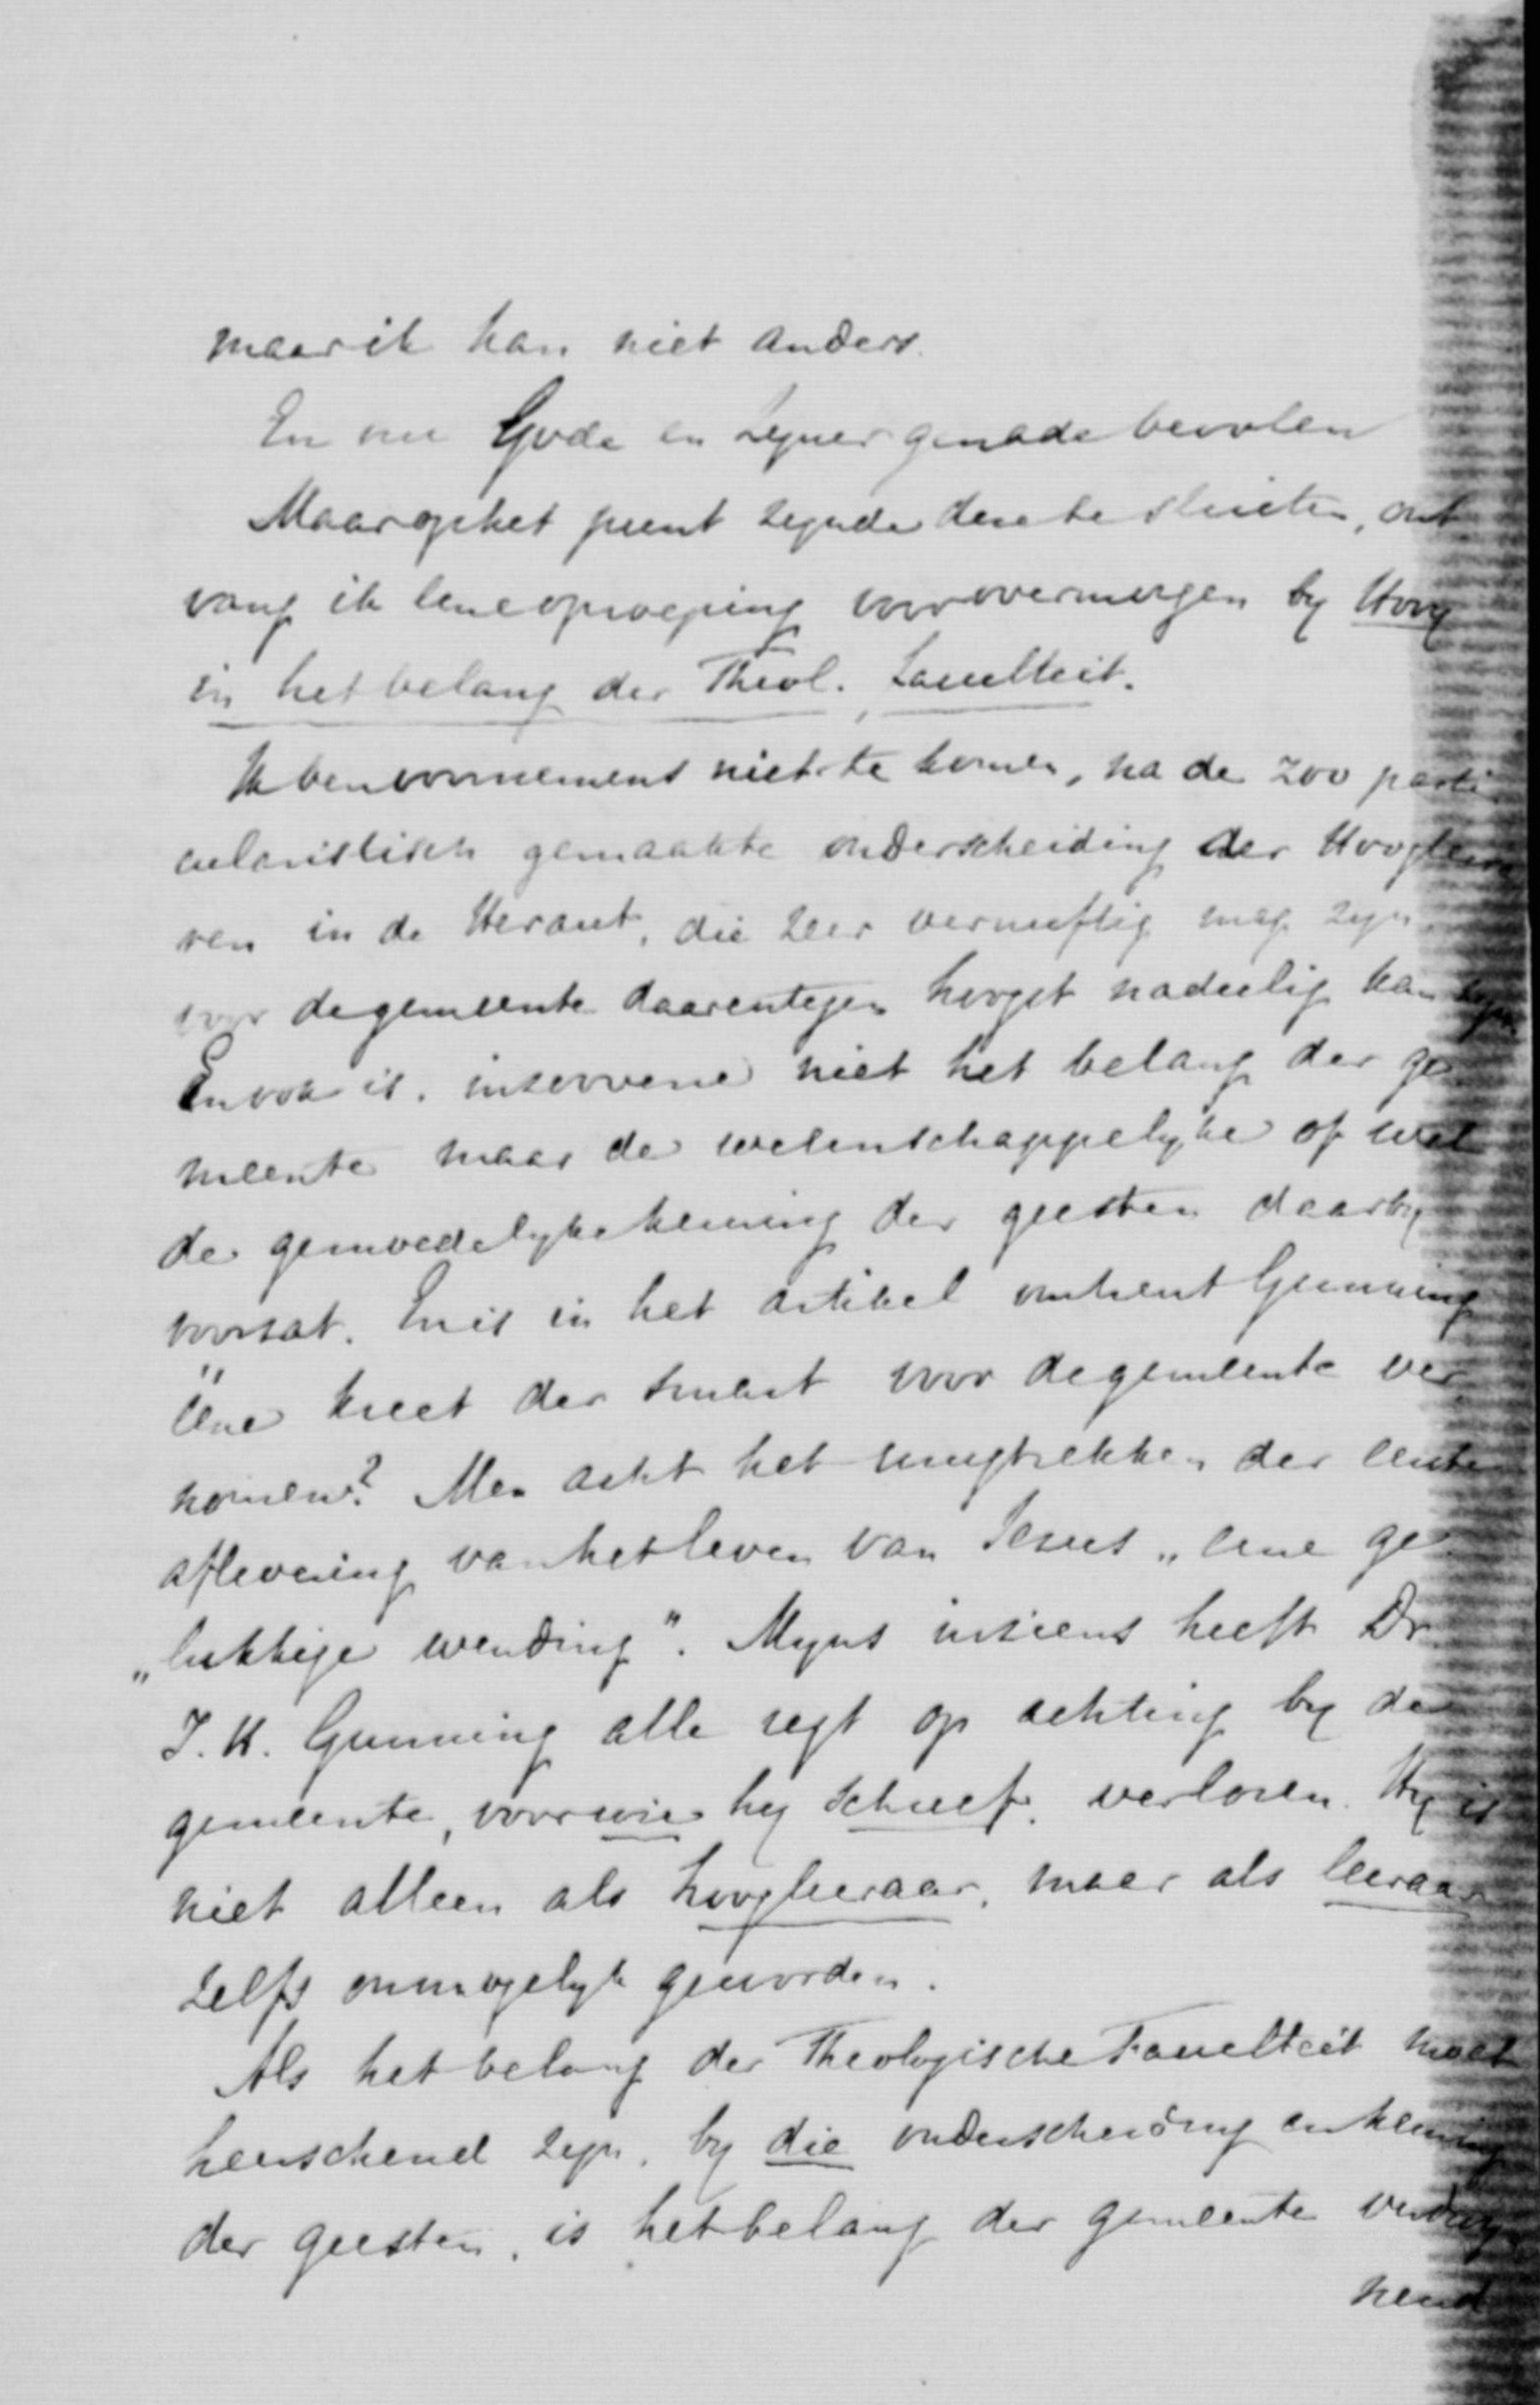 maar ik kan niet anders.
En nu Gode en Zyner genade bevolen
Maar op het punt zynde deze te sluiten, ont
vang ik eene oproeping voor overmorgen by Hovy
in het belang der Theol. Faculteit.
Ik ben voornemens niet te komen, na de zoo parti
cularistisch gemaakte onderscheiding der Hooglera
ren in de Heraut, die zeer vernuftig mag zyn
voor de gemeente daarentegen hoogst nadeelig kan zyn.
En ook is, inzooverre niet het belang der ge
meente maar de wetenschappelyke of wel
de gemoedelyke kenning der geesten daarby
voorzat. En is in het artikel omtrent Gunning
ééne kreet der smart voor de gemeente ver
nomen? Men acht het terugtrekken der eerste
aflevering van het leven van Jesus „eene ge
„lukkige wending". Myns inziens heeft Dr
J. H. Gunning alle regt op achting by de
gemeente, voor wie hy schreef, verloren. Hy is
niet alleen als hoogleeraar, maar als leeraar
zelfs onmogelyk geworden.
Als het belang der Theologische Faculteit moet
heerschend zyn, by die onderscheiding en kenning
der geesten, is het belang der gemeente